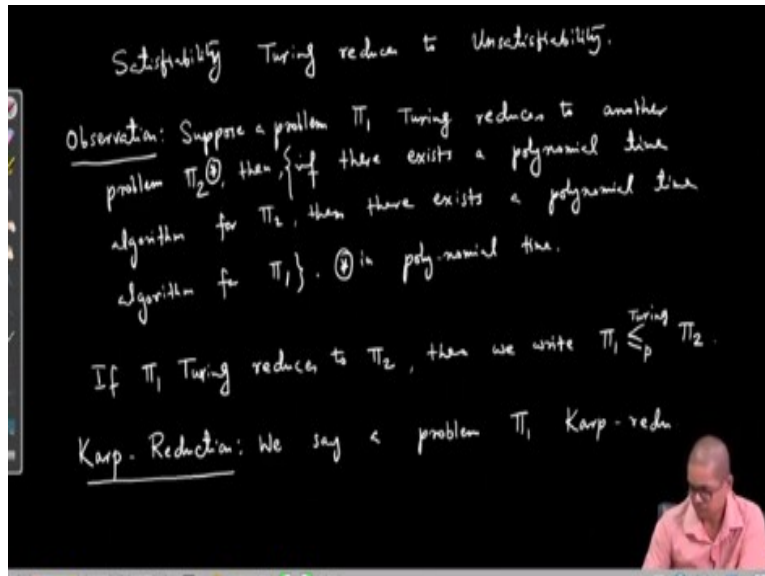 Satisfiability Turing reduces to Unsatisfiability.
Observation: Suppose a problem Π₁ Turing reduces to another
problem Π₂ ⊛, then, {if there exists a polynomial time
algorithm for Π₂, then there exists a polynomial time
algorithm for Π₁}. ⊛ in poly-nomial time.
If Π₁ Turing reduces to Π₂, then we write Π₁ ≤ₚᵀᵘʳⁱⁿᵍ Π₂.
Karp-Reduction: We say a problem Π₁ Karp-redu